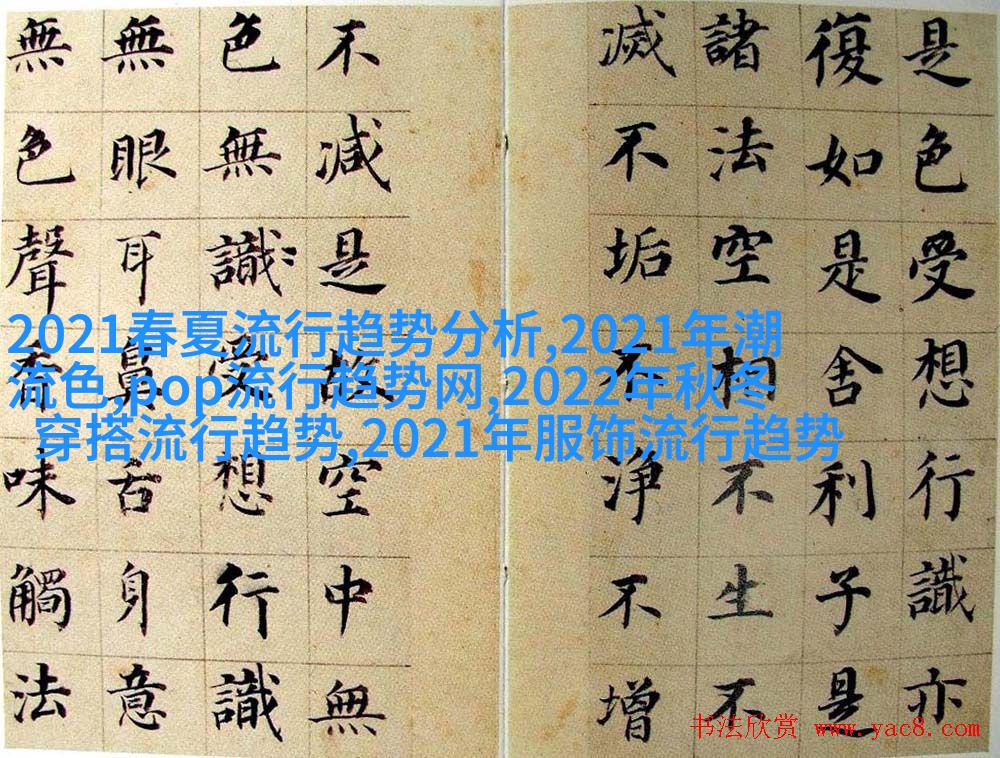 是色受想行識亦
復如是舍利子是
諸法空相不生不
滅不垢不淨不增
不減是故空中無
色無識受想行識
無眼耳鼻舌身意
無色聲香味觸法
2021春夏流行趋势分析,2021年潮
流色,pop流行趋势网,2022年秋冬
穿搭流行趋势,2021年服饰流行趋势
书法欣赏 www.yac8.com